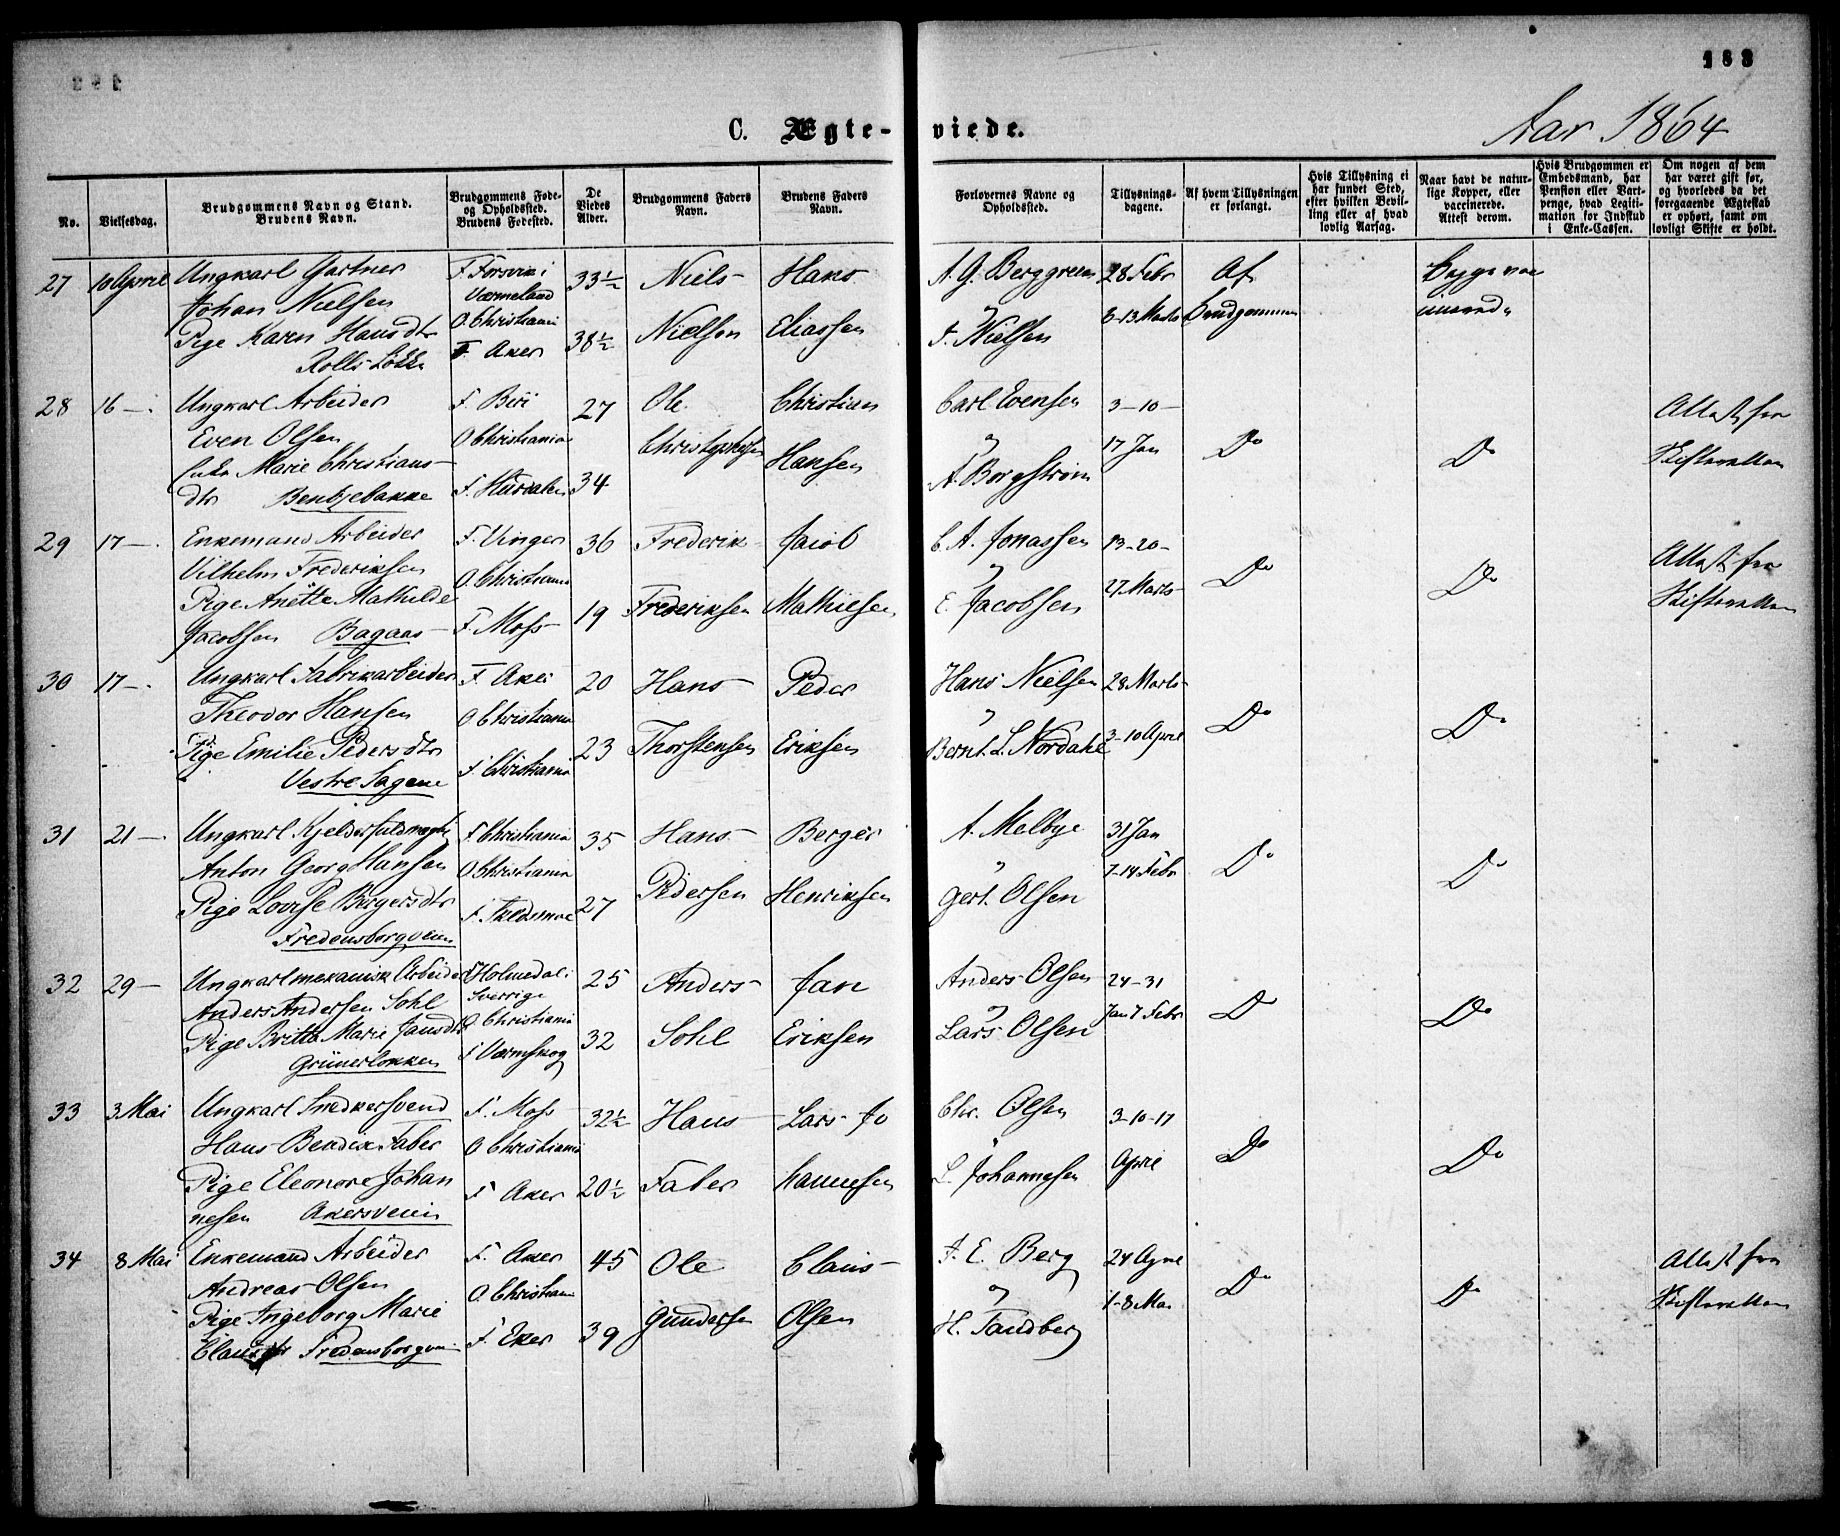 183
C. Ægte-viede.
Aar 1864
No. Vielsesdag. Brudgommens Navn og Stand. Brudens Navn. Brudgommens Føde- og Opholdssted. Brudens Fødested. De Viedes Alder. Brudgommens Faders Navn. Brudens Faders Navn. Forlovernes Navne og Opholdssted. Tillysnings-dagene. Af hvem Tillysningen er forlangt. Hvis Tillysning ei har fundet Sted, efter hvilken Bevilling eller af hvad lovlig Aarsag. Naar havt de naturlige Kopper, eller vaccinerede. Attest derom. Hvis Brudgommen er Embedsmand, har Pension eller Vartpenge, hvad Legitimation for Indskud i Enke-Cassen. Om nogen af dem har været gift før, og hvorledes da det foregaaende Ægteskab er ophørt, samt om lovligt Skifte er holdt.
27 10 April Ungkarl Gartner F. Forsvik i 33½ Niels Hans A. G. Berggreen 28 Febr Af Begge vac
Johan Nielsen Værmeland O. Christiania og 6-13 Marts Brudgommen cinered
Pige Karen Hansdtr F. Aker 38½ Nielsen Eliassen J. Nielsen
Rolls Løkke
28 16 — Ungkarl Arbeider F. Biri 27 Ole Christian Carl Evensen 3-10- Attest fra
Even Olsen O Christiania Christophersen og 17 Jan Do Do Skifteretten
Enke Marie Christians- Hansen
dtr Benktjebakke F. Hurdalen 34 A. Borgstrøm
29 17 — Enkemand Arbeider F. Vinger 36 Frederik Jacob C. A. Jonassen 13-20- Attest fra
Vilhelm Frederiksen O. Christiania og 27 Marts Do Do Skifteretten
Pige Anette Mathilde 19 Frederiksen Mathiesen E. Jacobsen
Jacobsen Bagaas F. Moss
30 17 — Ungkarl Fabrikarbeider F. Aker 20 Hans Peder Hans Nielsen 28 Marts
Theodor Hansen O Christiania og Do Do
Pige Emilie Pedersdtr F. Christiania 23 Thorstensen Eriksen Bernt L. Nordahl 3-10 April
Vestre Sagene
31 21 — Ungkarl Kjelderfuldmægtig F. Christiania 35 Hans Berger A. Melbye 31 Jan
Anton Georg Hansen O Christiania og 7-14 Febr Do Do
Pige Lovise Birgersdtr F. Skedsmoe 27 Pedersen Henriksen Gert. Olsen
Fredensborgveien
32 29 — Ungkarl mekanisk Arbeider F Holmedal i 25 Anders Jan Anders Olsen 24-31
Anders Andersen Sohl Sverrige O Christiania og Jan 7 Febr Do Do
Pige Britta Marie Jansdtr F Værmskog 32 Sohl Eriksen Lars Olsen
Grünerløkken
33 3 Mai Ungkarl Snedkersvend F. Moss 32½ Hans Lars Jo Chr. Olsen 3-10-17
Hans Bendix Faber O Christiania og April Do Do
Pige Eleonore Johan F Aker 20½ Faber hannesen L. Johannesen
nesen Akersveien
34 8 Mai Enkemand Arbeider F. Aker 45 Ole Claus J. E. Berg 24 April Attest fra
Andreas Olsen O. Christiania og 1-8 Mai Do Do Skifteretten
Pige Ingeborg Marie F. Eker 39 Gundersen Olsen H. Tandberg
Clausdtr Fredensborgvei